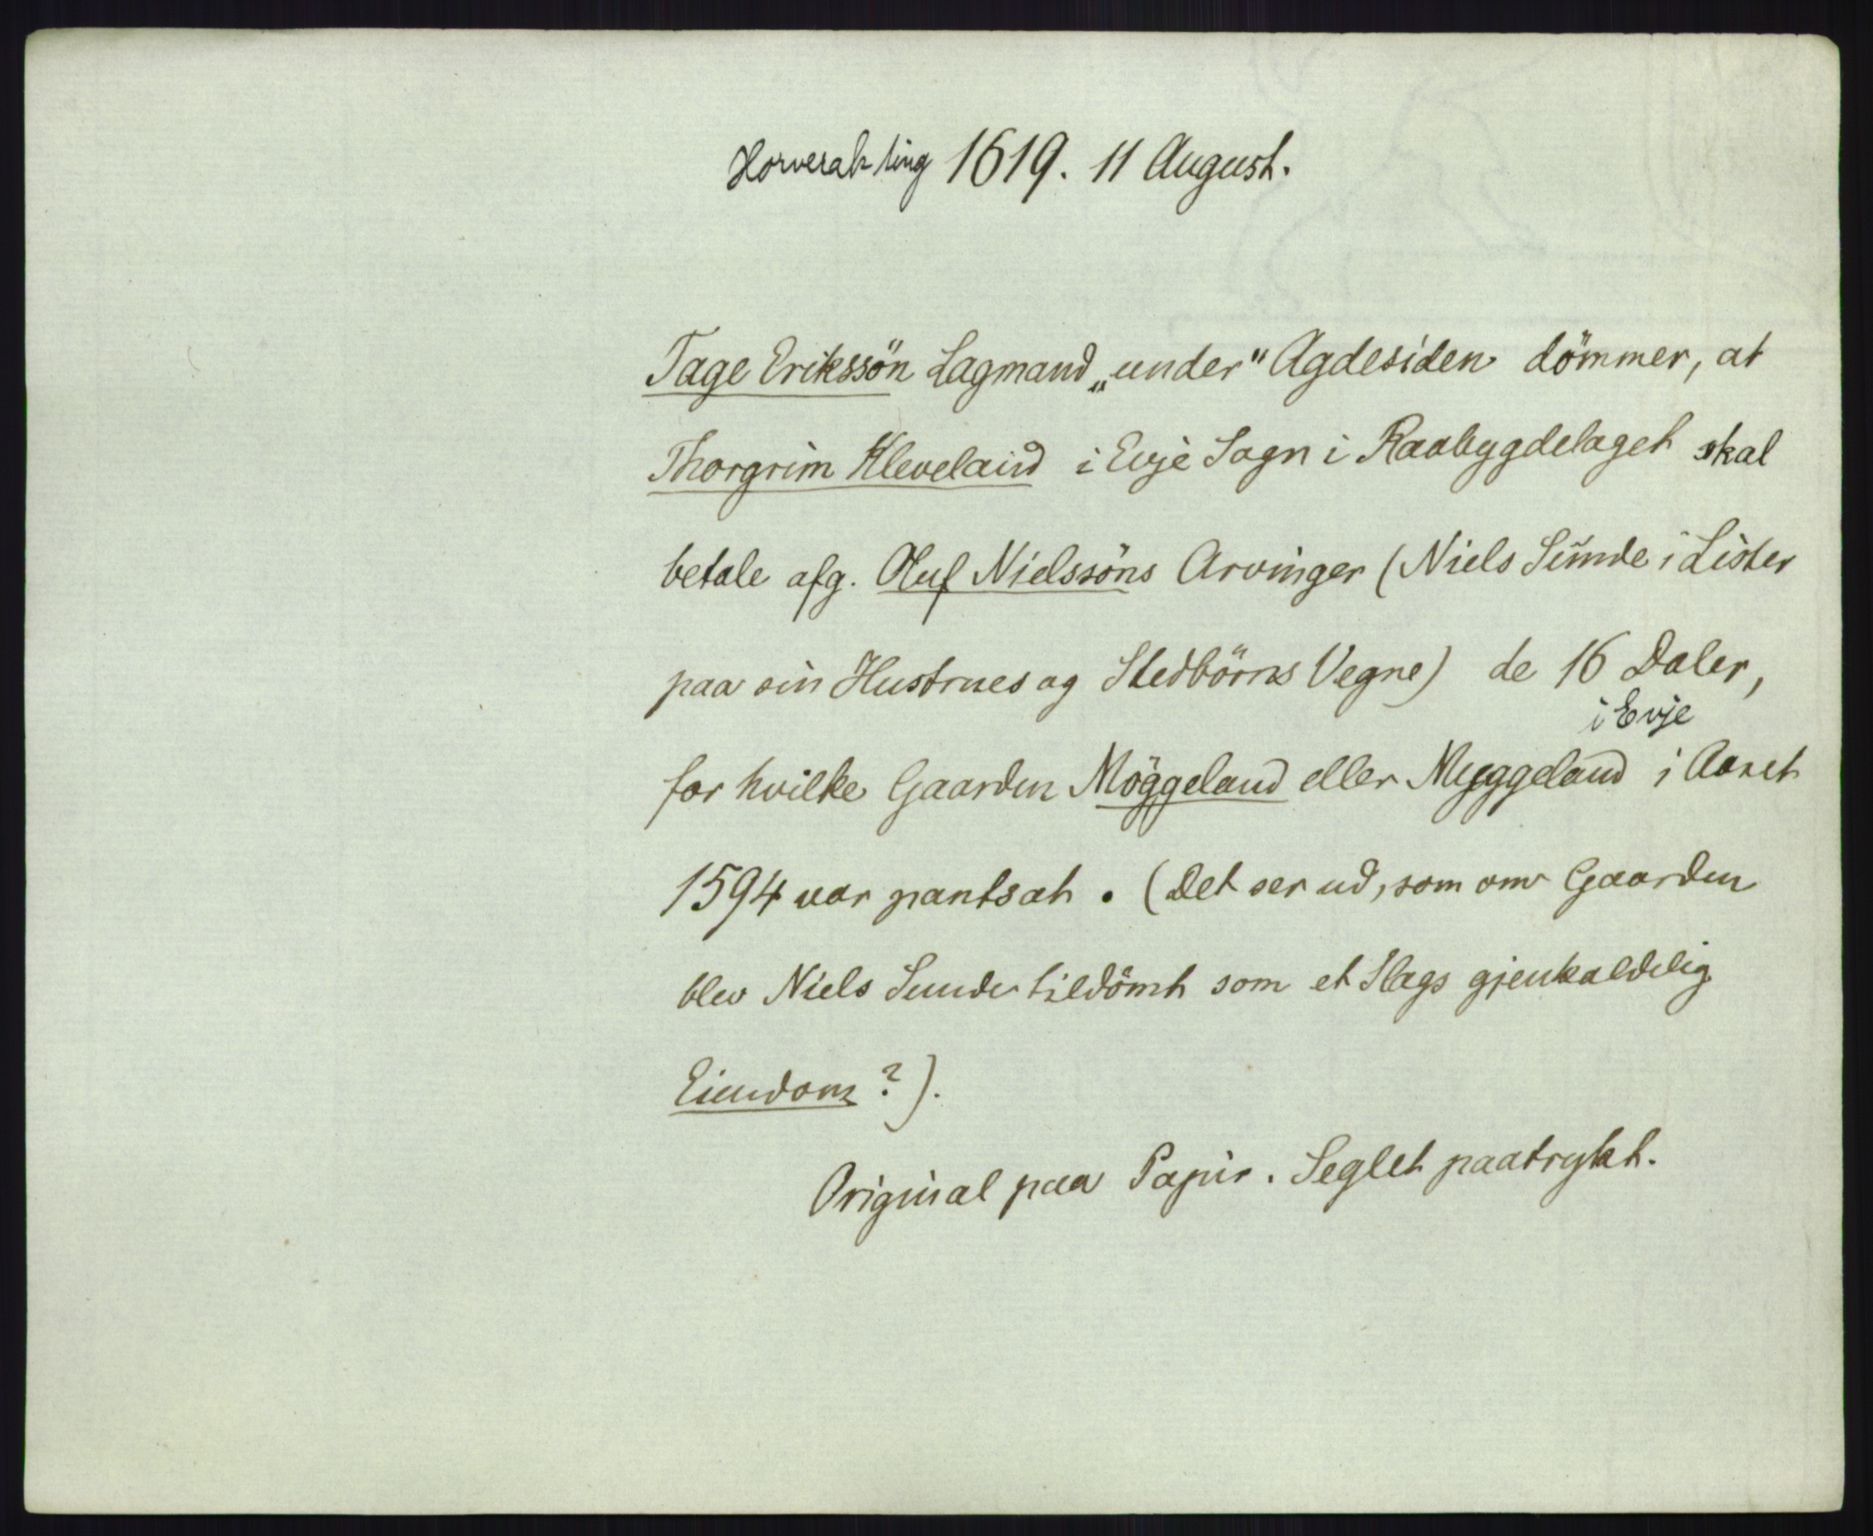 Horverak ting 1619. 11 August.
Tage Erikssön Lagmand „under" Agdesiden dömmer, at
Thorgrim Kleveland i Evje Sogn i Raabygdelaget skal
betale afg. Oluf Nielssöns Arvinger (Niels Sunde i Lister
paa sin Hustrues og Stedbörns Vegne) de 16 Daler,
i Evje
for hvilke Gaarden Möggeland eller Myggeland i Aaret
1594 var pantsat. (Det ser ud, som om Gaarden
blev Niels Sunde tildömt som et Slags gjenkaldelig
Eiendom?).
Original paa Papir. Seglet paatrykt.